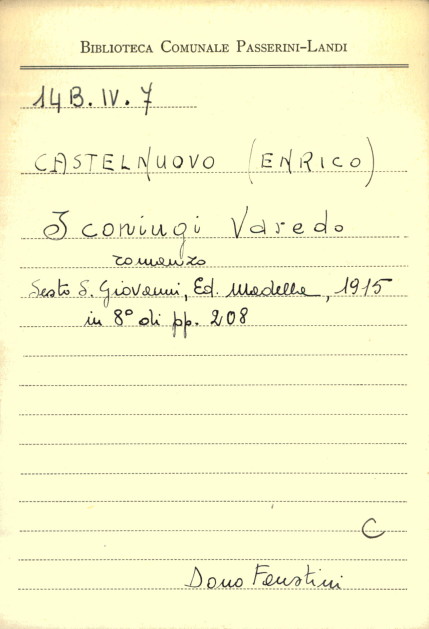 BIBLIOTECA COMUNALE PASSERINI-LANDI
14 B. IV. 7
CASTELNUOVO (ENRICO)
I coniugi Varedo
romanzo
Sesto S. Giovanni, Ed. Madella, 1915
in 8° di pp. 208
C
Dono Faustini